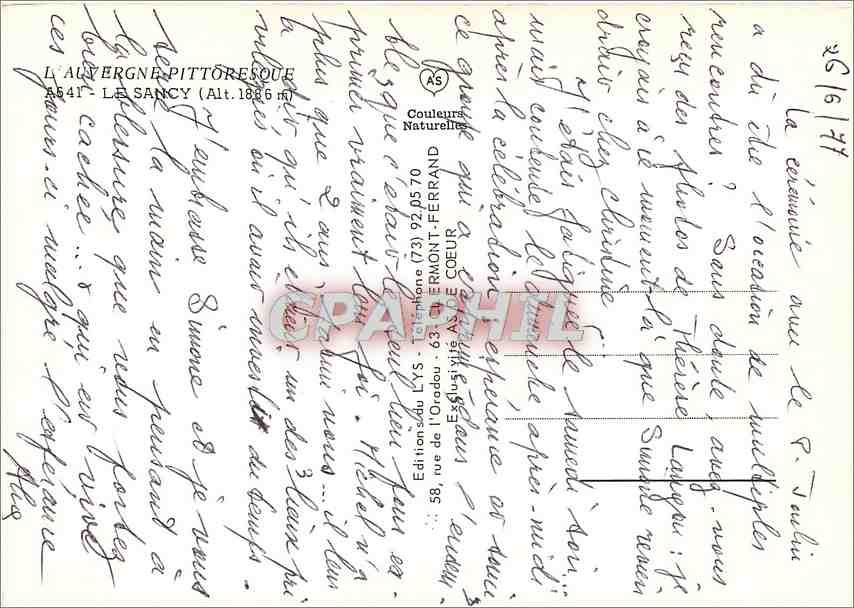 26/6/77
La cérémonie avec le P. Toulin
a du être l'occasion de multiples
rencontres ? Sans doute, avez-vous
reçu des photos de Thérèse : je
croyais à ce moment là que Simone
drait chez Christine.
J'étais fatiguée le samedi soir..
mais contente, le dimanche après-midi
après la célébration
ce groupe qui a exprimé dans l'ensem-
ble, que c'était le seul lieu pour ex-
primer vraiment leur foi. Michel n'a
plus que 2 ans, parmi nous... il leur
a dit qu'ils étaient un des 3 lieux pri
vilégiés où il avait investit du temps.
J'embrasse Simone et je vous
serre la main en pensant à
la blessure que vous portez
bien cachée... & qui est vive
ces jours-ci malgré l'espérance
L'AUVERGNE PITTORESQUE
A641 - LE SANCY (Alt. 1886 m)
AS
Couleurs
Naturelles
Editions du LYS - Téléphone (73) 92.05 70
58, rue de l'Oradou - 63 CLERMONT-FERRAND
Exclusivité AS DE COEUR
CPAPHIL